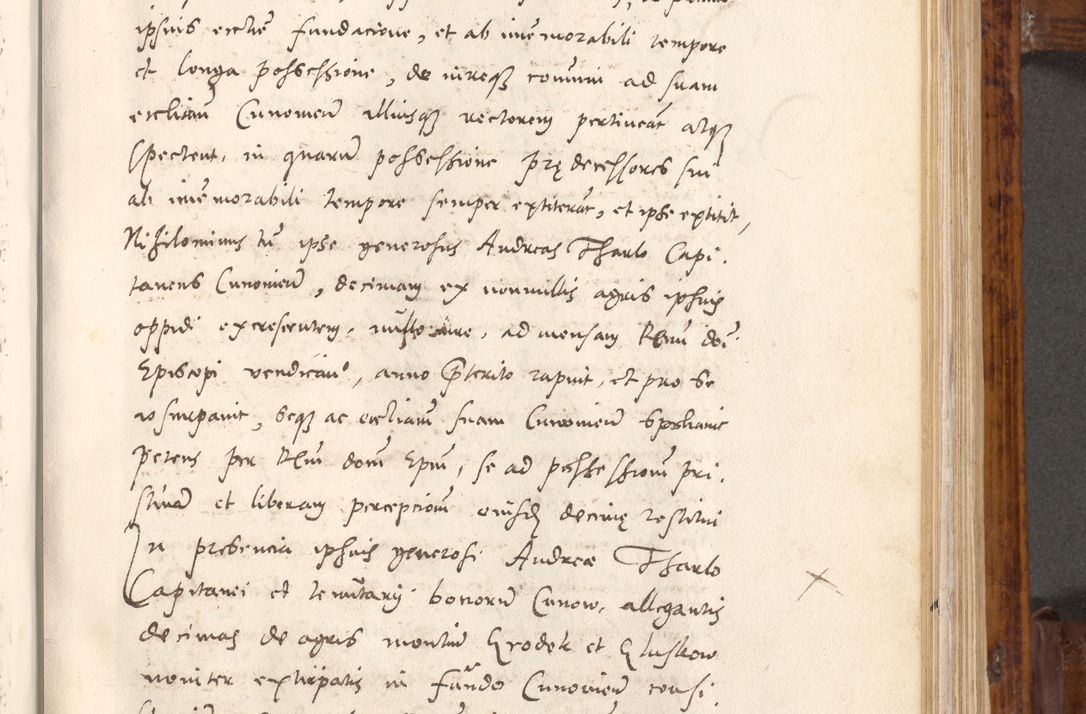 ipsius ecctie fundacione, et ab imemorabili tempore
et longa possessione, de iureqz comuni ad suam
ecctiam Cunovien illiusqz rectorem pertineat atqz
spectent, in quarum possessione prędecessores sui
ab imemorabili tempore semper extiterat, et ipse extitit,
Nihilominus tn ipse generosus Andreas Tharlo Capi.
taneus Cunovien, decimam ex nonnullis agris ipsius
oppidi excrescentem, iniusto iure, ad mensam Rmi doi
Episcopi vendicans, anno preterito rapuit, et pro se
usurpavit, seqz ac ecctiam suam Cunovien spoliavit
petens per Rm dom Epm, se ad possessionem pri.
stina et liberam percepcionem eiusdem decimę restitui
In presencia ipsius generosi Andreæ Tharlo
Capitanei et tenutary bonorum Cunow, allegantis
decimas de agris montium Grodek et Gluskow
noviter extirpatis in fundo Cunovien consi.